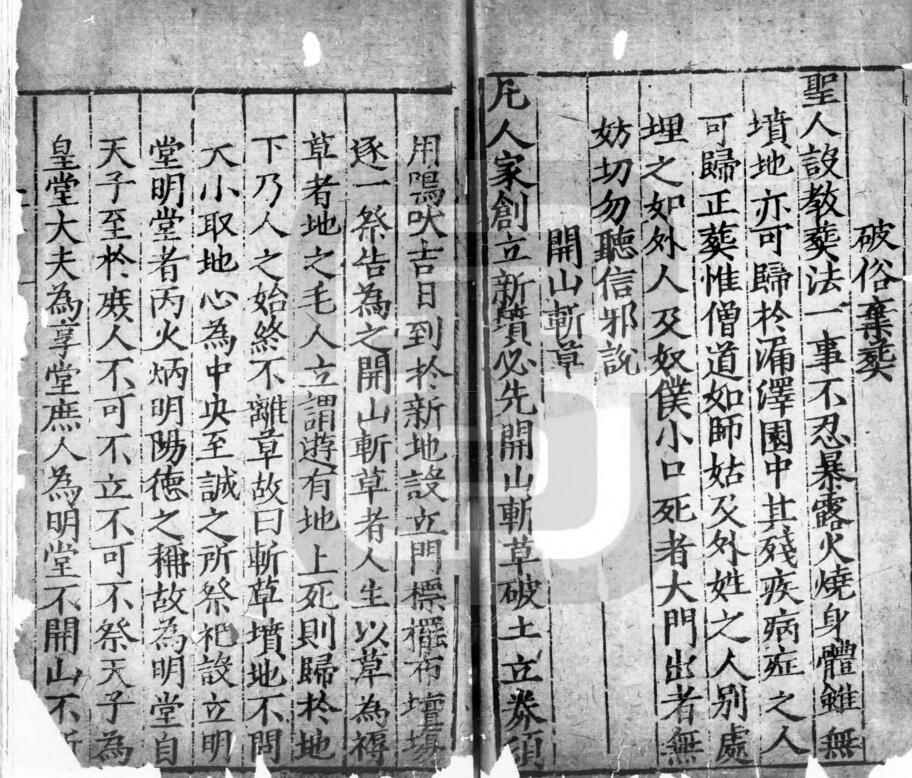 破俗棄葬
聖人設教葬法一事不忍暴露火燒身體雖無
墳地亦可歸於漏澤園中其殘疾病症之人
可歸正葬惟僧道如師姑及外姓之人別處
埋之如外人及奴僕小口死者大門出者無
妨切勿聽信邪說
開山斬草
凡人家創立新墳必先開山斬草破土立券須
用鳴吠吉日到於新地設立門標擺布壇場
逐一祭告為之開山斬草者人生以草為褥
草者地之毛人立謂遊有地上死則歸於地
下乃人之始終不離草故曰斬草墳地不問
大小取地心為中央至誠之所祭祀設立明
堂明堂者丙火炳明陽德之稱故為明堂自
天子至於庻人不可不立不可不祭天子為
皇堂大夫為享堂庶人為明堂不開山不